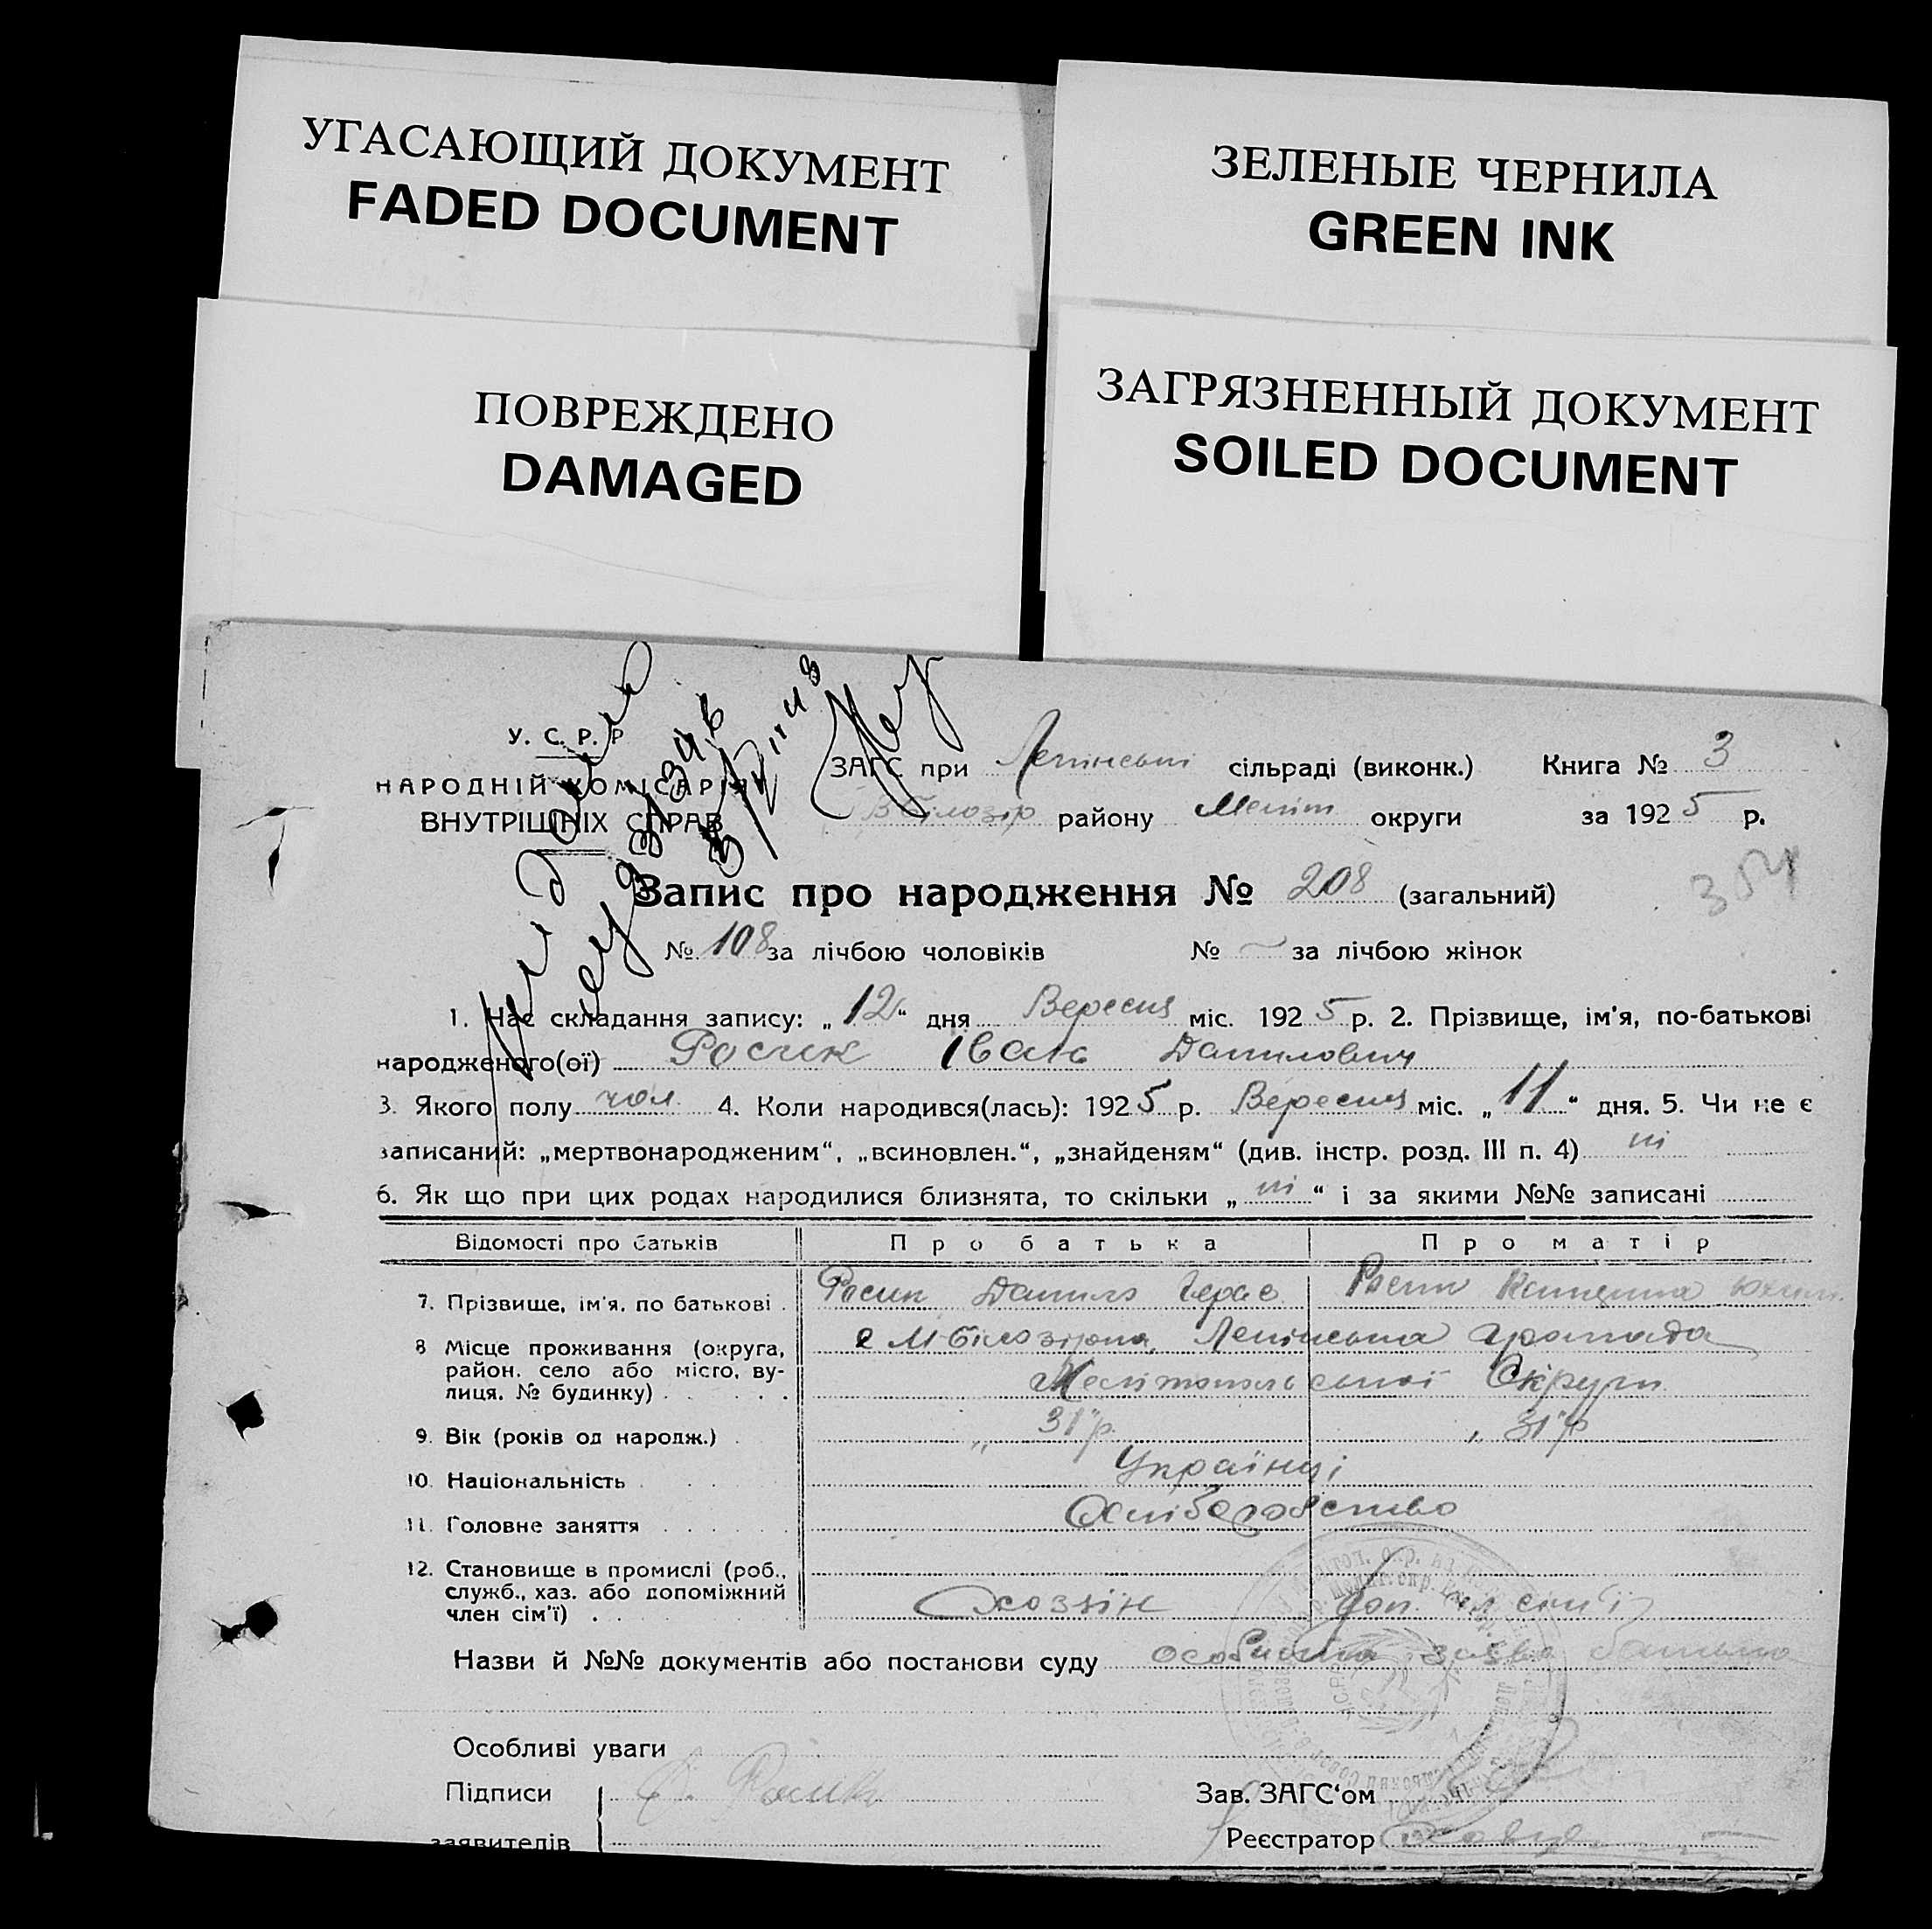 УГАСАЮЩИЙ ДОКУМЕНТ
FADED DOCUMENT
ЗЕЛЕНЫЕ ЧЕРНИЛА
GREEN INK
ПОВРЕЖДЕНО
DAMAGED
ЗАГРЯЗНЕННЫЙ ДОКУМЕНТ
SOILED DOCUMENT
У. С. Р. Р
НАРОДНІЙ КОМІСАРІЯТ
ВНУТРІШНІХ СПРАВ
ЗАГС при Ленінські сільраді (виконк.) Книга № 3
В Білозір району Меліт округи за 1925 р.
Запис про народження № 208 (загальний)
354
№ 108 за лічбою чоловіків № за лічбою жінок
1. Час складання запису: „12“ дня Вересня міс. 1925 р. 2. Прізвище, ім'я, по-батькові
народженого(ої) Росик Іван Данилович
3. Якого полу чол. 4. Коли народився(лась): 1925 р. Вересня міс. „11“ дня. 5. Чи не є
записаний: „мертвонародженим“, „всиновлен.“, „знайденям“ (див. інстр. розд. III п. 4) ні
6. Як що при цих родах народилися близнята, то скільки „ні“ і за якими №№ записані
Відомості про батьків Про батька Про матір
7. Прізвище, ім'я, по батькові . Росик Данило Герас.
8 Місце проживання (округа, район, село або місто, вулиця, № будинку) с М-Білозірка, Ленінська Громада
Мелітопольської Округи
9. Вік (років од народж.) . „ 31 р. „ 31 р
10. Національність Українці
11. Головне заняття Хліборобство
12. Становище в промислі (роб.,
служб., хаз. або допоміжний
член сім'ї) . Хозяін доп. чл сім'ї
Назви й №№ документів або постанови суду особиста заява батька
Особливі уваги
Підписи Росик Зав. ЗАГС‘ом
заявителів Реєстратор